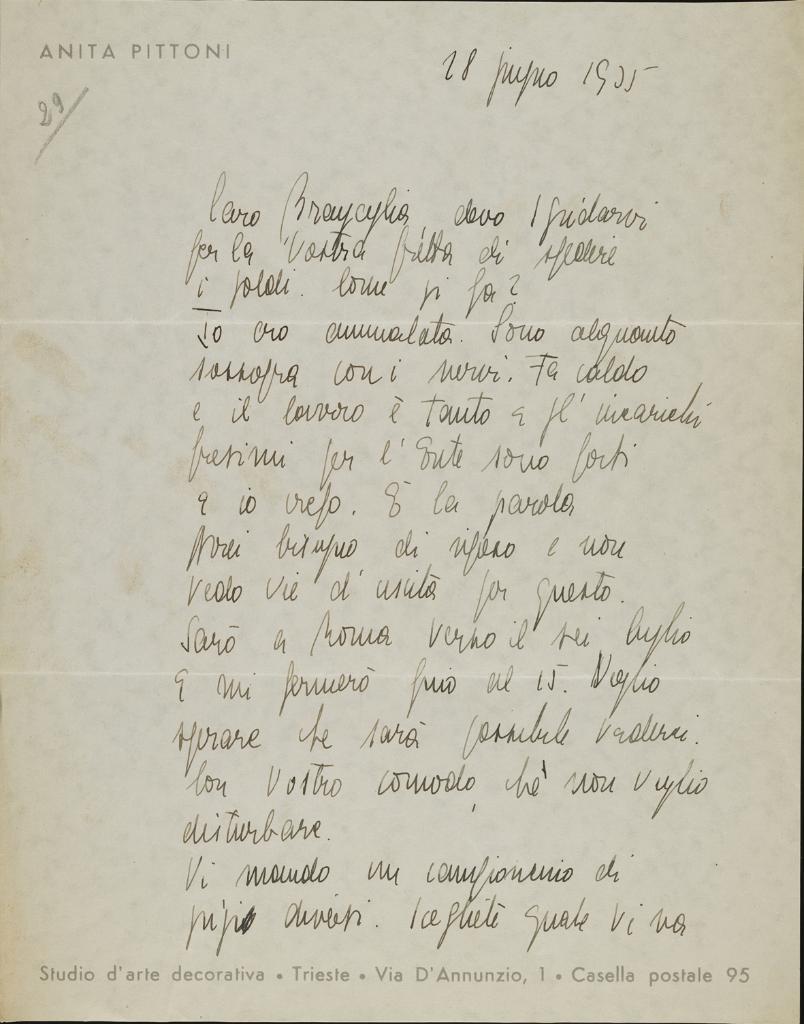 ANITA PITTONI
28 giugno 1935
29
Caro Bragaglia devo sgridarvi
per la Vostra fretta di spedire
i soldi. Come si fa?
Io ero ammalata. Sono alquanto
sossopra con i nervi. Fa caldo
e il lavoro è tanto e gl' incarichi
per l' Ente sono forti
e io crepo. È la parola
Avrei bisogno di riposo e non
vedo vie d' uscita per questo.
Sarò a Roma verso il sei luglio
e mi fermerò fino al 15. Voglio
sperare che sarà possibile vederci.
Con Vostro comodo, ché non voglio
disturbare.
Vi mando un campionario di
grigi diversi. Scegliete quale Vi va
Studio d'arte decorativa • Trieste • Via D'Annunzio, 1 • Casella postale 95